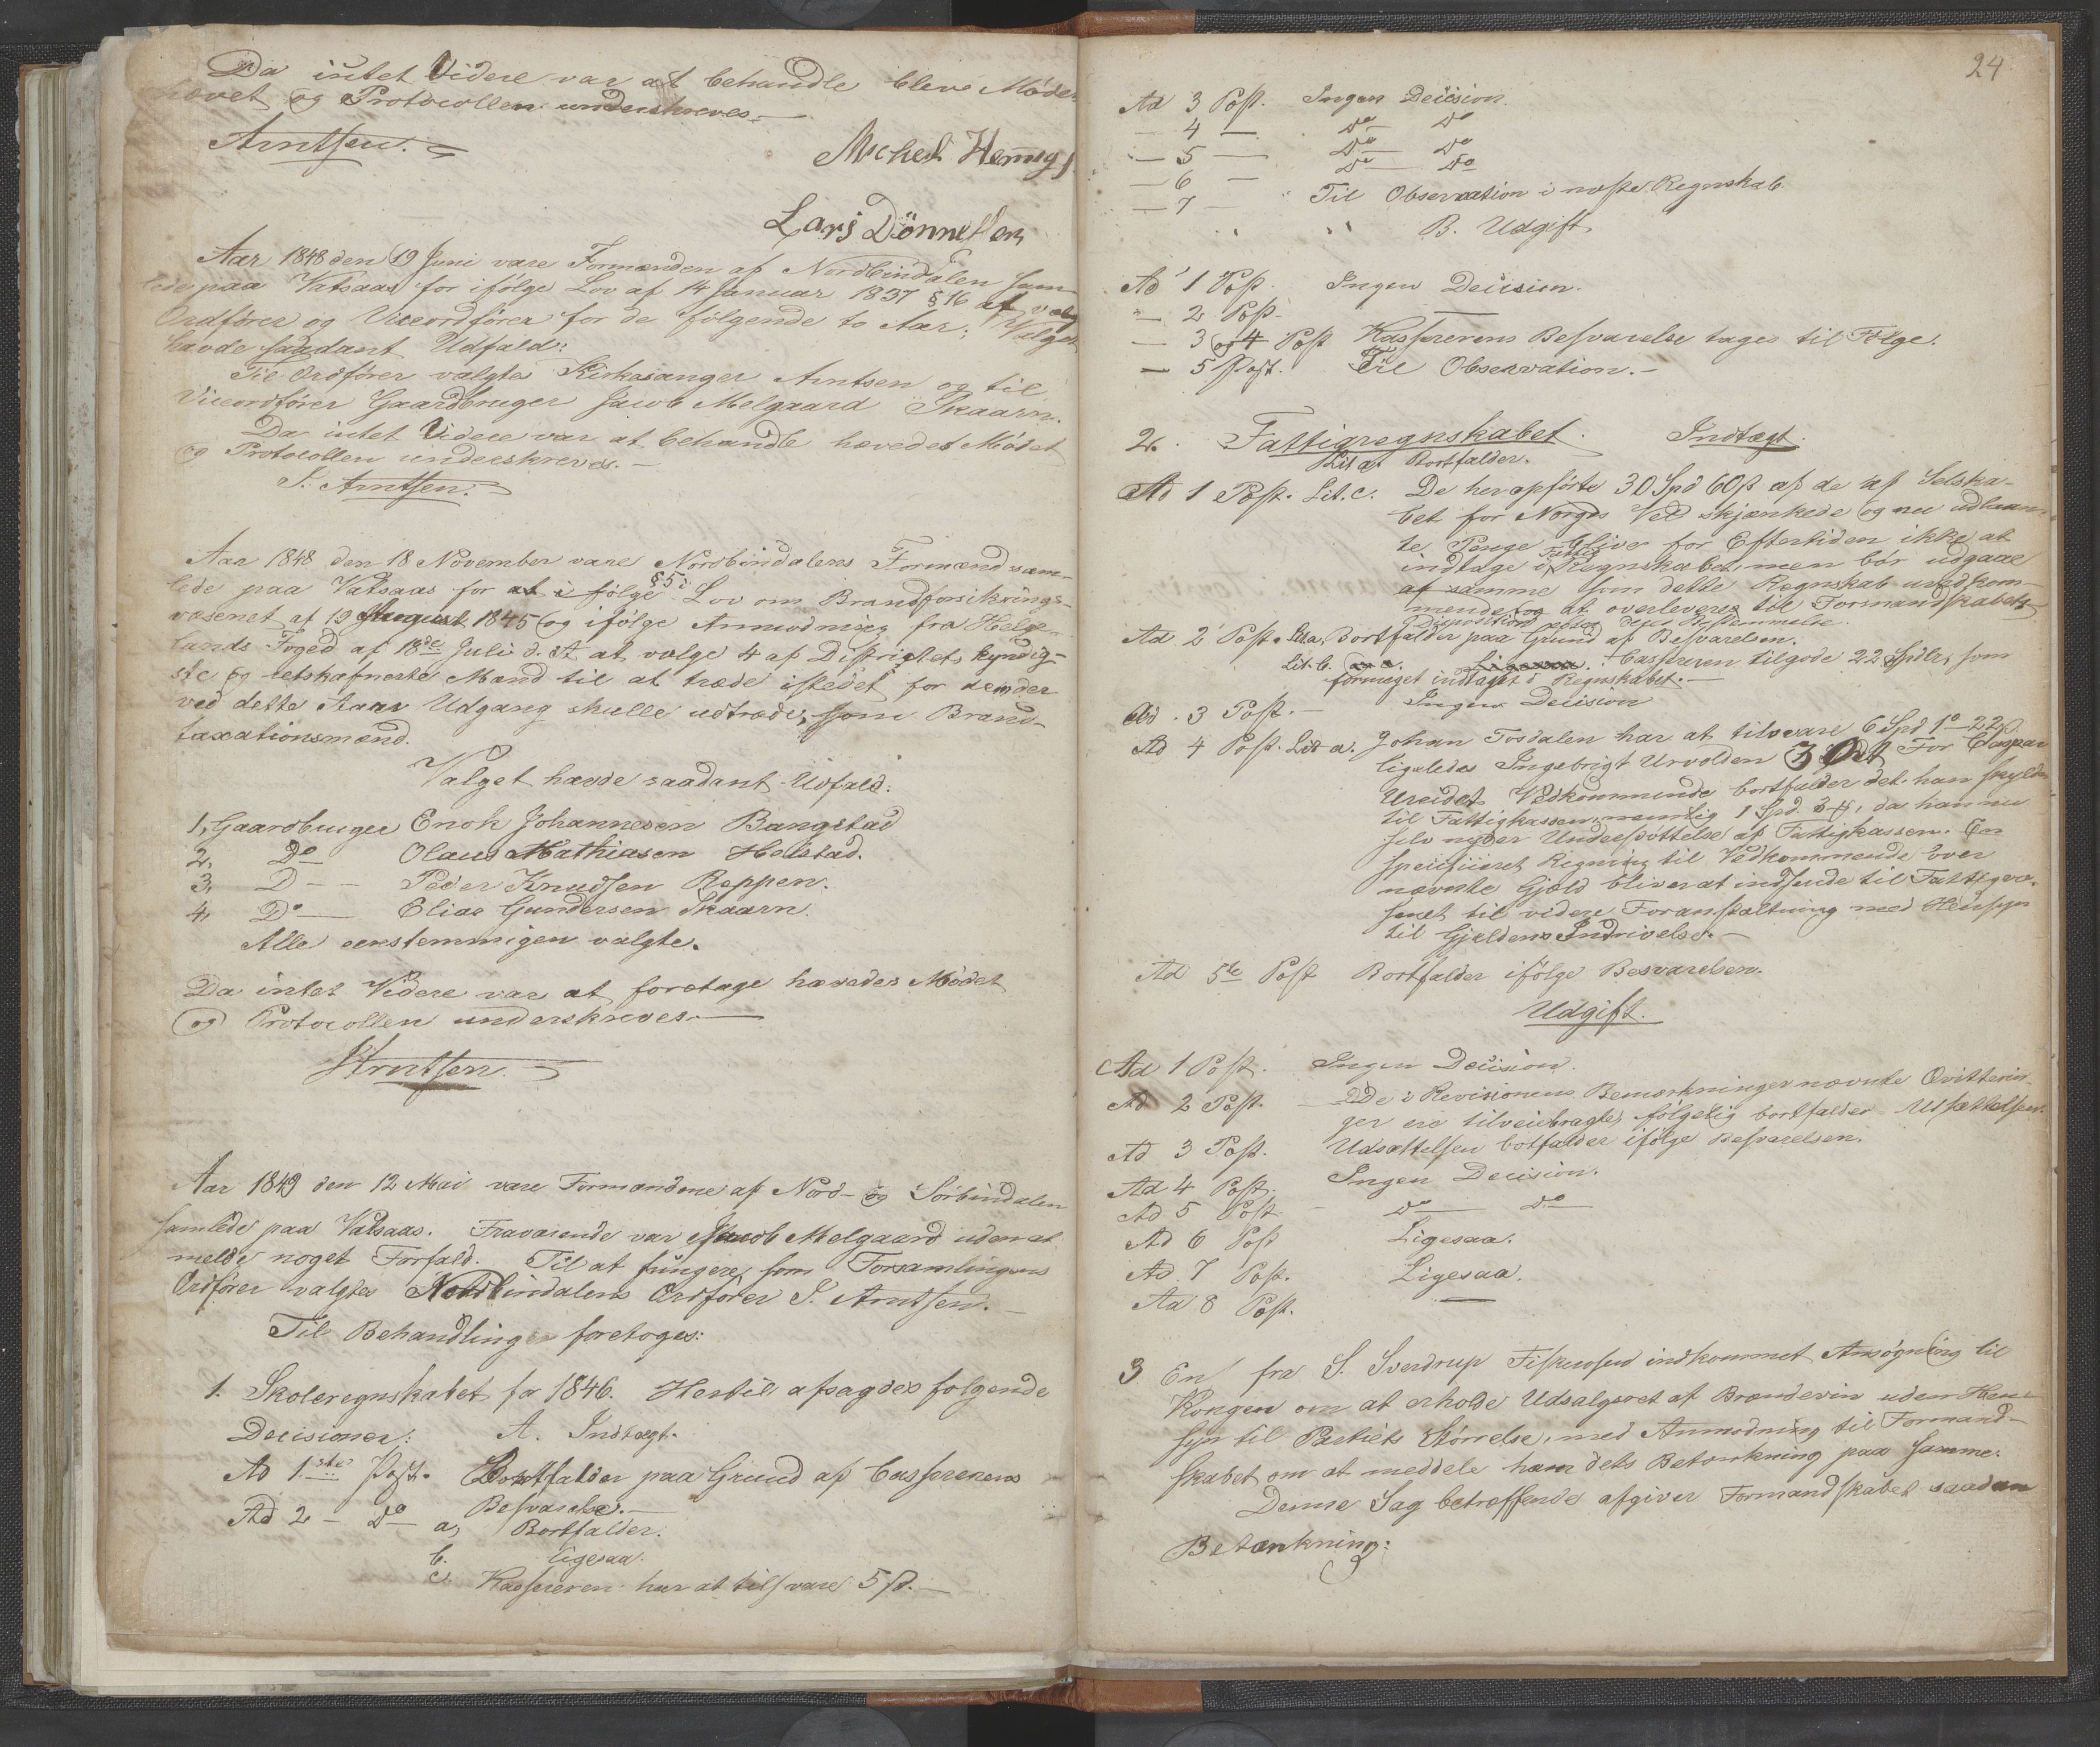 Da intet Videre var at behandle blev Møde
hævet og Protocollen underskreves.
Arntsen.
Michel Hemigs
Lars Dönnesen
Aar 1848 den 19 Juni vare Formænden af Nordbindalen Sam-
lede paa Vatsaas for ifölge Lov af 14 Januar 1837 § 16 at vælg
Ordförer og Viceordförer for de fölgende to Aar; Valget
havde saadant Udfald:
Til Ordförer valgtes Kirkesanger Arntsen og til
Viceordförer Gaardbruger Jacob Melgaard Skaarn.
Da intet Videre var at behandle hævedes Mödet
og Protocollen underskreves.-
S. Arntsen.
Aar 1848 den 18 November vare Nordbindalens Formænd sam-
lede paa Vatsaas for at i fölge § 5 i Lov om Brandforsikrings-
væsenet af 19 August 1845 og ifölge Anmodning fra Helge-
lands Foged af 18de Juli d. A. at vælge 4 af Distrigtets kyndig-
ste og retskafneste Mænd til at træde istedet for den der
ved dette Aars Udgang skulle udtræde, som Brand-
taxationsmænd.
Valget havde saadant Udfald:
1, Gaardbruger Enok Johannesen Bangstad
2, Do Olaus Mathiasen Helstad.
3, D-- Peder Knudsen Reppen.
4, Do Elias Gundersen Skaarn.
Alle eenstemmigen valgte.
Da intet Videre var at foretage hævedes Mödet
og Protocollen underskreves.-
Arntsen.
Aar 1849 den 12 Mai vare Formændene af Nord- og Sörbindalen
samlede paa Vatsaas. Fraværende var Jacob Melgaard uden at
melde noget Forfald. Til at fungere som Forsamlingens
Ordförer valgtes Nordbindalens Ordförer S. Arntsen.-
Til Behandling foretoges:
1. Skoleregnskabet for 1846. Hertil afsagdes folgende
Decisioner: A. Indtægt.
Ad 1ste Post. Bortfalder paa Grund af Casserenens
Besvarelse.-
Ad 2 - Do a, Bortfalder.
b. ligesaa.
c, Kasseren har at tilsvare 5 ß.-
24
Ad 3 Post. Ingen Decision.
- 4 - Do Do
- 5 - Do Do
- 6 - Do Do
- 7 - Til Observation i næste Regnskab.
B. Udgift.
Ad 1 Post. Ingen Decision.
- 2 Post -
- 3 og 4 Post Kassererens Besvarelse tages til Fölge.
- 5 Post. Til Observation.-
2. Fattigregnskabet. Indtægt.
Lit a. Bortfalder.
Ad 1 Post. Lit. c. De heropförte 30 Spd 60 ß af de af Selska-
bet for Norges Vel skjænkede og nu udlaan-
te Penge bliver for Eftertiden ikke at
indtage i Fattig Regnskabet, men bör udgaae
af samme som dette Regnskab uvedkom-
mende og at overleveres til Formandskabets
Disposition efter dens Bestemmelse.
Ad 2 Post. Lit a, bortfalder paa Grund af Besvarelsen.
Lit. b. Casseren tilgode 22 Spdlr, som
formeget indtaget i Regnskabet.-
Ad. 3 Post.- Ingen Decision
Ad 4 Post. Lit a. Johan Tosdalen har at tilsvare 6 Spd 1 o-22ß.
ligeledes Ingebrigt Urvolden 3 Ort For Caspar
Ureidets Vedkommende bortfalder det han skylder
til Fattigkassen, nemlig 1 Spd 3 , da han nu
selv nyder Understöttelse af Fattigkassen. En
specificeret Regning til Vedkommende over
nævnte Gjæld bliver at indsende til Fattigvæ-
senet til videre Foranstaltning med Hensyn
til Gjældens Indrivelse.-
Ad 5te Post Bortfalder ifölge Besvarelsen.
Udgift.
Ad 1 Post. Ingen Decision.
Ad 2 Post. De i Revisionens Bemærkninger nævnte Qvitterin-
ger ere tilveiebragte, fölgelig bortfalder Udsættelsen.
Ad 3 Post. Udsættelsen botfalder ifölge Besvarelsen.
Ad 4 Post. Ingen Decision.
Ad 5 Post - Do Do
Ad 6 Post Ligesaa.
Ad 7 Post. Ligesaa.
Ad 8 Post. -
3 En fra S. Sverdrup Fiskerosen indkommet Ansögning til
Kongen om at erholde Udsalgsret af Brændeviin uden Hen-
syn til Partiets Störrelse, med Anmodning til Formand-
skabet om at meddele ham dets Betænkning paa samme.
Denne Sag betreffende afgiver Formandskabet saadan
Betænkning: